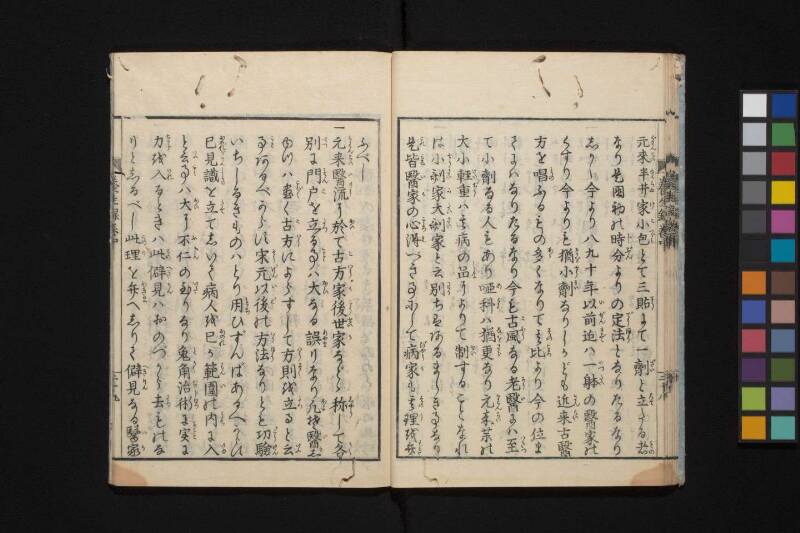 元来半井家小包とて三貼にて一劑と立たる者
なり是国初の時分よりの定法となりたるなり
しかし今より八九十年以前迄ハ一躰の醫家の
くすり今よりも猶小劑なりしかども近来古醫
方を唱ふるもの多くなりて其比より今の位に
なりたるなり今も古風なる老醫にハ至
て小劑なる人もあり嘔科ハ猶更なり元来茶の
大小軽重ハ其病の品によりて制することなれ
は小剤家大剤家と云別ちあるましきなり
是皆醫家の心得へきにして病家も其理を弁
ふべし
一元来醫流に於て古方家後世家などゝ称して各
別に門戸を立るハ大なる誤りなり凡醫
ハ盡く古方によらずして方則を立ると云
あるべからず宋元以後の方法なりとも功驗
いちしるきものハとり用ひずんばあるべからず
己見識を立てしいて病人を己が範圍の内に入
ハ大に不仁の至りなり兎角治術に実に
力を入るときハ此僻見ハおのづから去ものな
りとしるべし此理を弁へしりて僻見なる醫家
養生録巻中